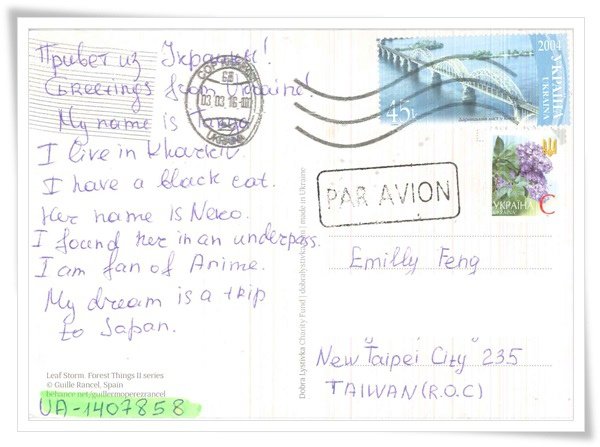 Привет из Украины!
Greetings from Ukraine!
My name is Tanya.
I live in Kharkiv.
I have a black cat.
Her name is Neko.
I found her in an underpass.
I am fan of Anime.
My dream is a trip
to Japan.
Leaf Storm. Forest Things II series
© Guille Rancel, Spain
behance.net/guillermoperezrancel
UA-1407858
Dobra Lystivka Charity Fund | dobralystivka.com | made in Ukraine
03 03 16
2004
УКРАЇНА
UKRAINA
45
PAR AVION
УКРАЇНА
C
Emilly Feng
New "Taipei City" 235
TAIWAN (R.O.C)